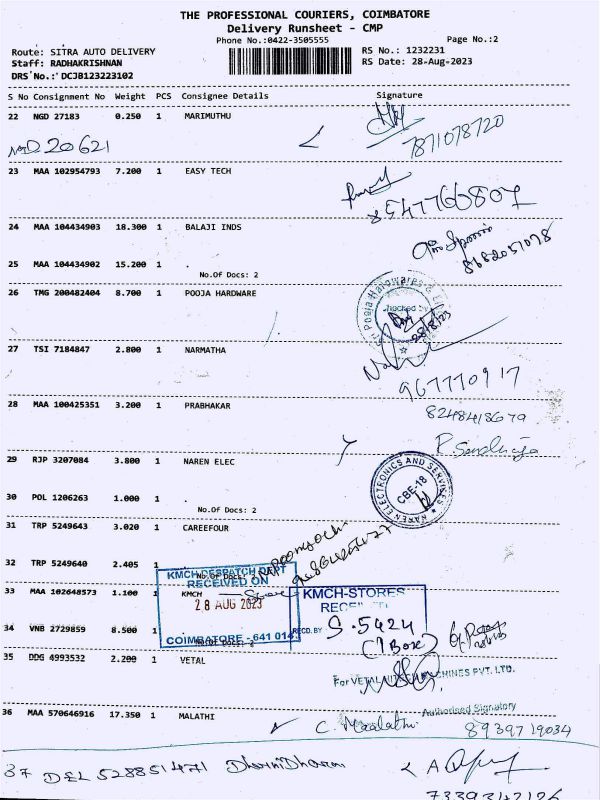 THE PROFESSIONAL COURIERS, COIMBATORE
Delivery Runsheet - CMP
Phone No.:0422-3505555
Page No.:2
Route: SITRA AUTO DELIVERY
RS No.: 1232231
Staff: RADHAKRISHNAN
RS Date: 28-Aug-2023
DRS No.: DCJB123223102
S No Consignment No Weight PCS Consignee Details Signature
22 NGD 27183 0.250 1 MARIMUTHU
NGD 20621
7871078720
23 MAA 102954793 7.200 1 EASY TECH
8547766807
24 MAA 104434903 18.300 1 BALAJI INDS
8682051078
25 MAA 104434902 15.200 1
No.Of Docs: 2
26 TMG 200482404 8.700 1 POOJA HARDWARE
Sri Pooja Hardwares &
28/8/23
27 TSI 7184847 2.800 1 NARMATHA
967770917
28 MAA 100425351 3.200 1 PRABHAKAR
8248418679
29 RJP 3207084 3.800 1 NAREN ELEC
NAREN ELECTRONICS AND SERVICES
CBE-18
30 POL 1206263 1.000 1
No.Of Docs: 2
31 TRP 5249643 3.020 1 CAREEFOUR
32 TRP 5249640 2.405 1
No.Of Docs:
KMCH-DESPATCH DEPT
RECEIVED ON
28 AUG 2023
COIMBATORE - 641 014
33 MAA 102648573 1.100 1 KMCH
KMCH-STORES
RECD. BY
S.5424
(1 Box)
34 VNB 2729859 8.500 1
35 DDG 4993532 2.200 1 VETAL
For VETAL MACHINES PVT. LTD.
Authorised Signatory
36 MAA 570646916 17.350 1 MALATHI
C. Maalathi 8939719034
37 DEL 528851471 DharniDharan
7339342126